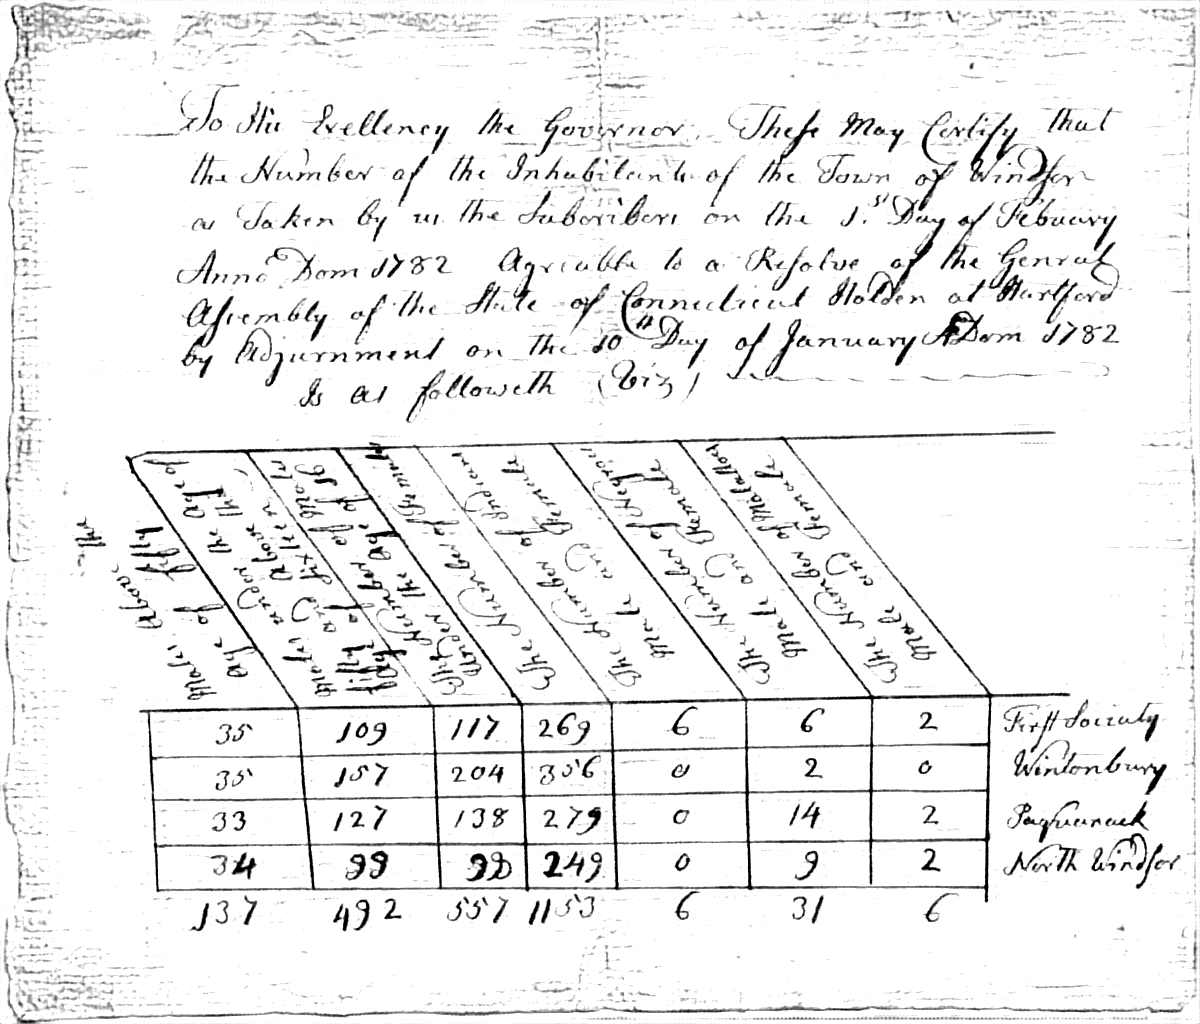 To His Exellency the Governor. These May Certify that
the Number of the Inhabitants of the Town of Windsor
as Taken by us the Subscribers on the 1st Day of Febuary
Anno Dom 1782 Agreable to a Resolve of the Genral
Assembly of the State of Connecticut Holden at Hartford
by Adjurnment on the 10th Day of January ADom 1782
Is as followeth (Viz)
Males Above the
Age of fifty
Males under the Age of
fifty and Above the
Age of Sixteen
The Number of Males
Under the Age of 16
The Number of Females
The Number of Indians
Male and Female
The Number of Negros
Male and Female
The Number of Malattoes
Male and Female
35 109 117 269 6 6 2 First Sociaty
35 157 204 356 0 2 0 Wintonbury
33 127 138 279 0 14 2 Poquanack
34 99 98 249 0 9 2 North Windsor
137 492 557 1153 6 31 6